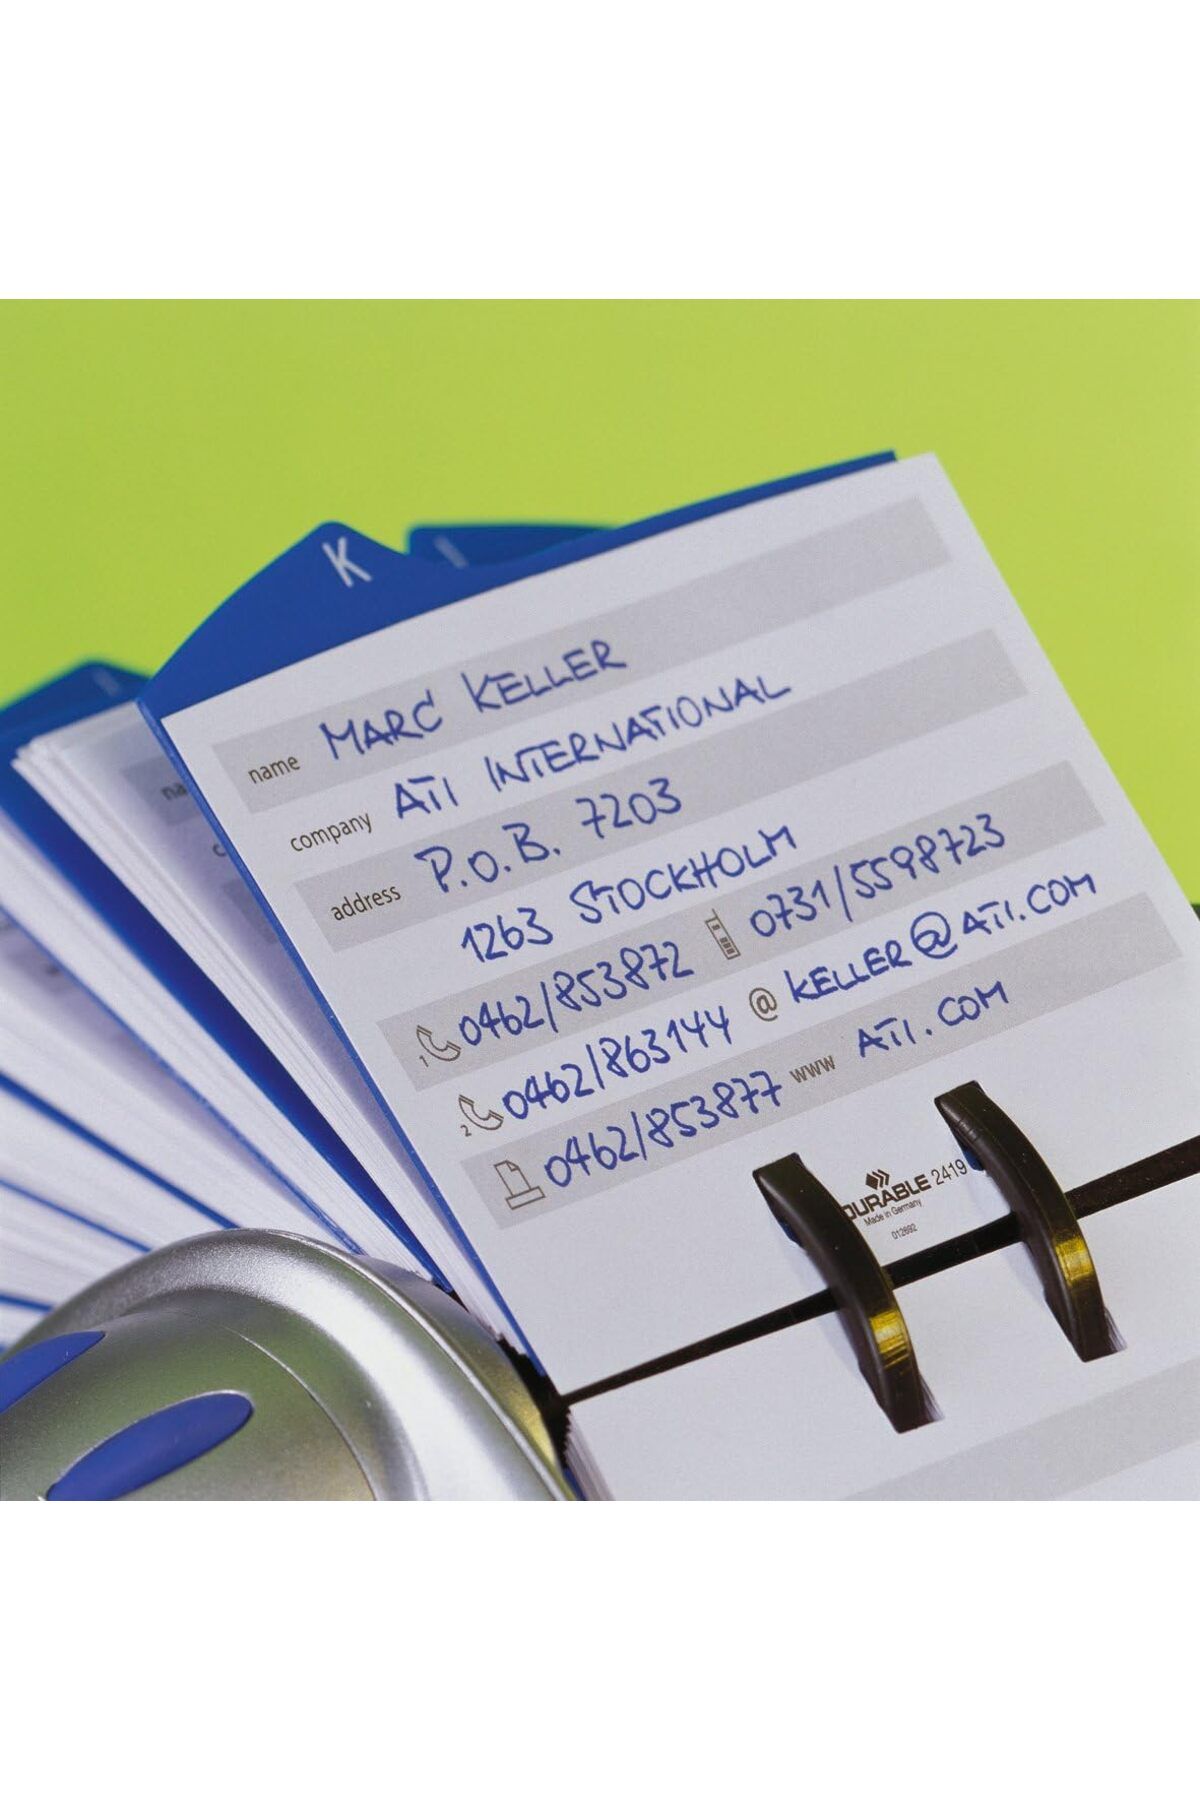 K
name MARC KELLER
company ATI INTERNATIONAL
address P.O.B. 7203
1263 STOCKHOLM
1 0462/853872 0731/5598723
2 0462/863144 @ KELLER@ATI.COM
0462/853877 www ATI.COM
DURABLE 2419
Made in Germany
012692